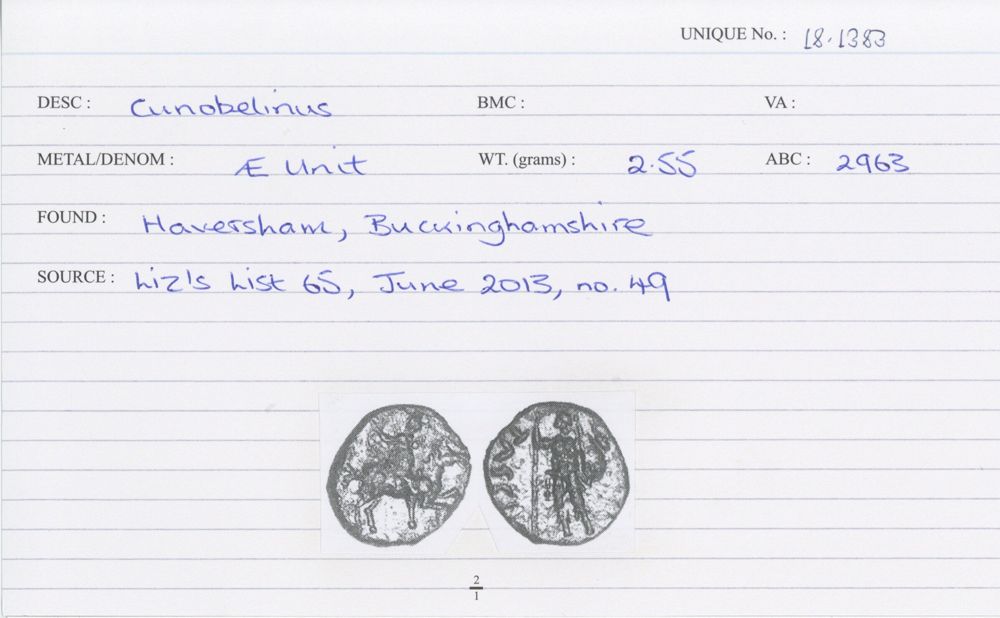 UNIQUE No. : 18.1383
DESC : Cunobelinus BMC : VA :
METAL/DENOM : Æ Unit WT. (grams) : 2.55 ABC : 2963
FOUND : Haversham, Buckinghamshire
SOURCE : Liz's List 65, June 2013, no. 49
2
1